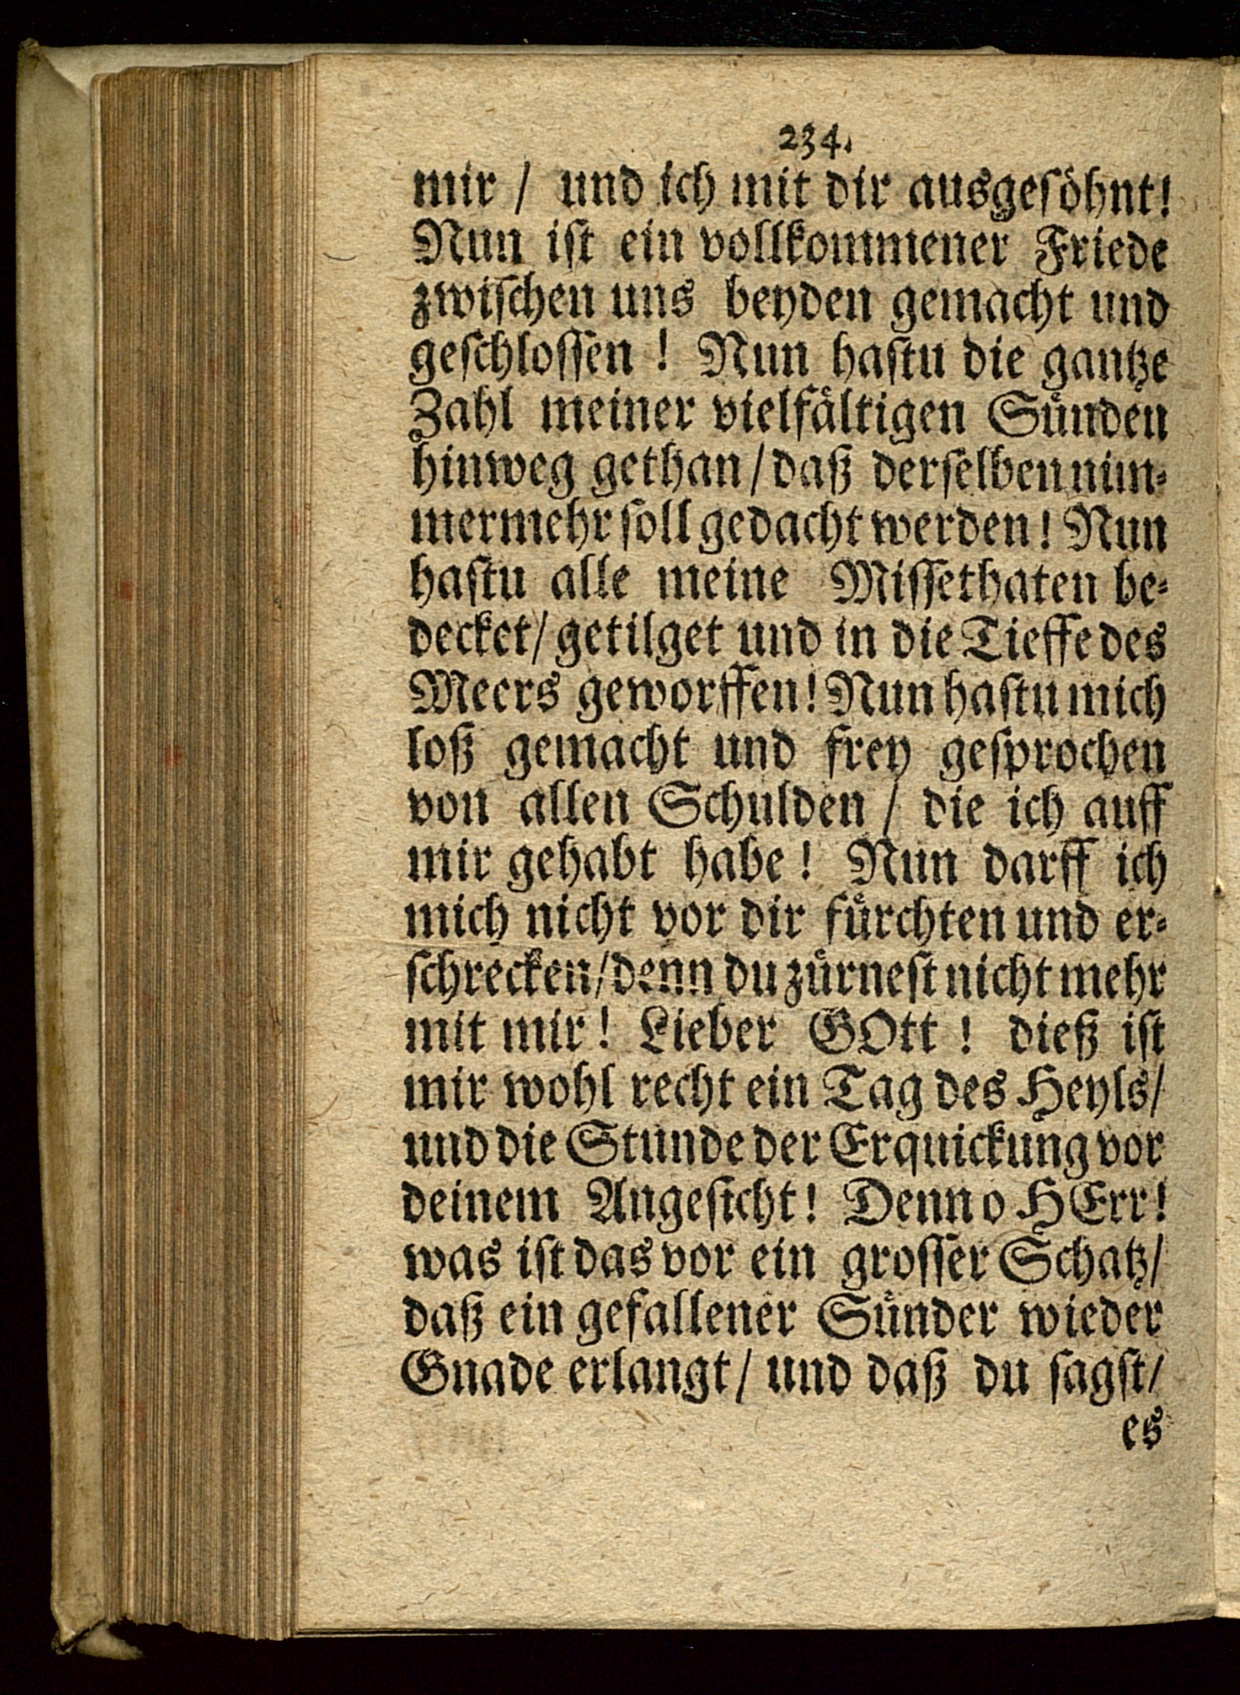 234.
mir / und ich mit dir ausgeſöhnt!
Nun iſt ein vollkommener Friede
zwiſchen uns beyden gemacht und
geſchloſſen! Nun haſtu die gantze
Zahl meiner vielfältigen Sünden
hinweg gethan/daß derſelben nim-
mermehr ſoll gedacht werden! Nun
haſtu alle meine Miſſethaten be-
decket/getilget und in die Tieffe des
Meers geworffen! Nun haſtu mich
loß gemacht und frey geſprochen
von allen Schulden / die ich auff
mir gehabt habe! Nun darff ich
mich nicht vor dir fürchten und er-
ſchrecken/denn du zürneſt nicht mehr
mit mir! Lieber GOtt! dieß iſt
mir wohl recht ein Tag des Heyls/
und die Stunde der Erquickung vor
deinem Angeſicht! Denn o HErr!
was iſt das vor ein groſſer Schatz/
daß ein gefallener Sünder wieder
Gnade erlangt/ und daß du ſagſt/
es